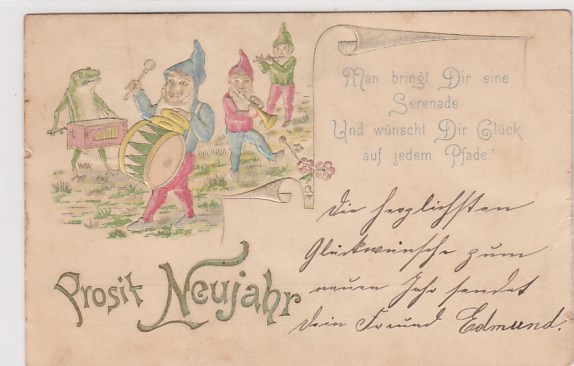 Man bringt Dir eine
Serenade
Und wünscht Dir Glück
auf jedem Pfade.
Die herzlichsten
Glückwünsche zum
neuen Jahr sendet
Dein Freund Edmund.
Prosit Neujahr